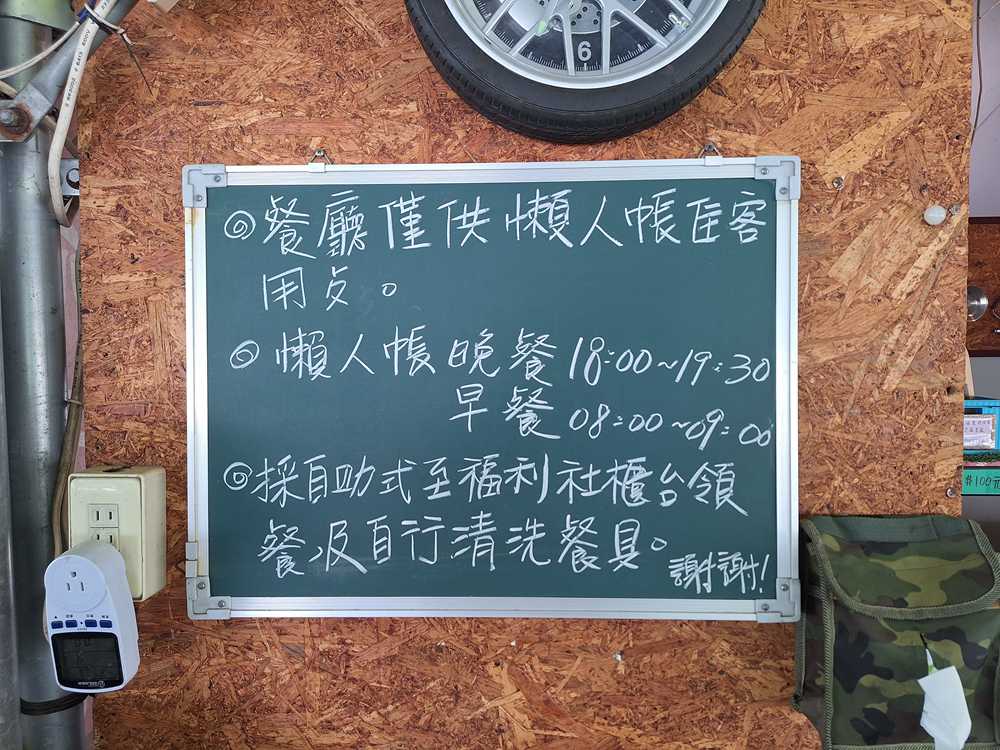 ◎餐廳僅供懶人帳住客
用餐。
◎懶人帳晚餐18:00~19:30
早餐08:00~09:00
◎採自助式至福利社櫃台領
餐及自行清洗餐具。
謝謝!
6
#100元